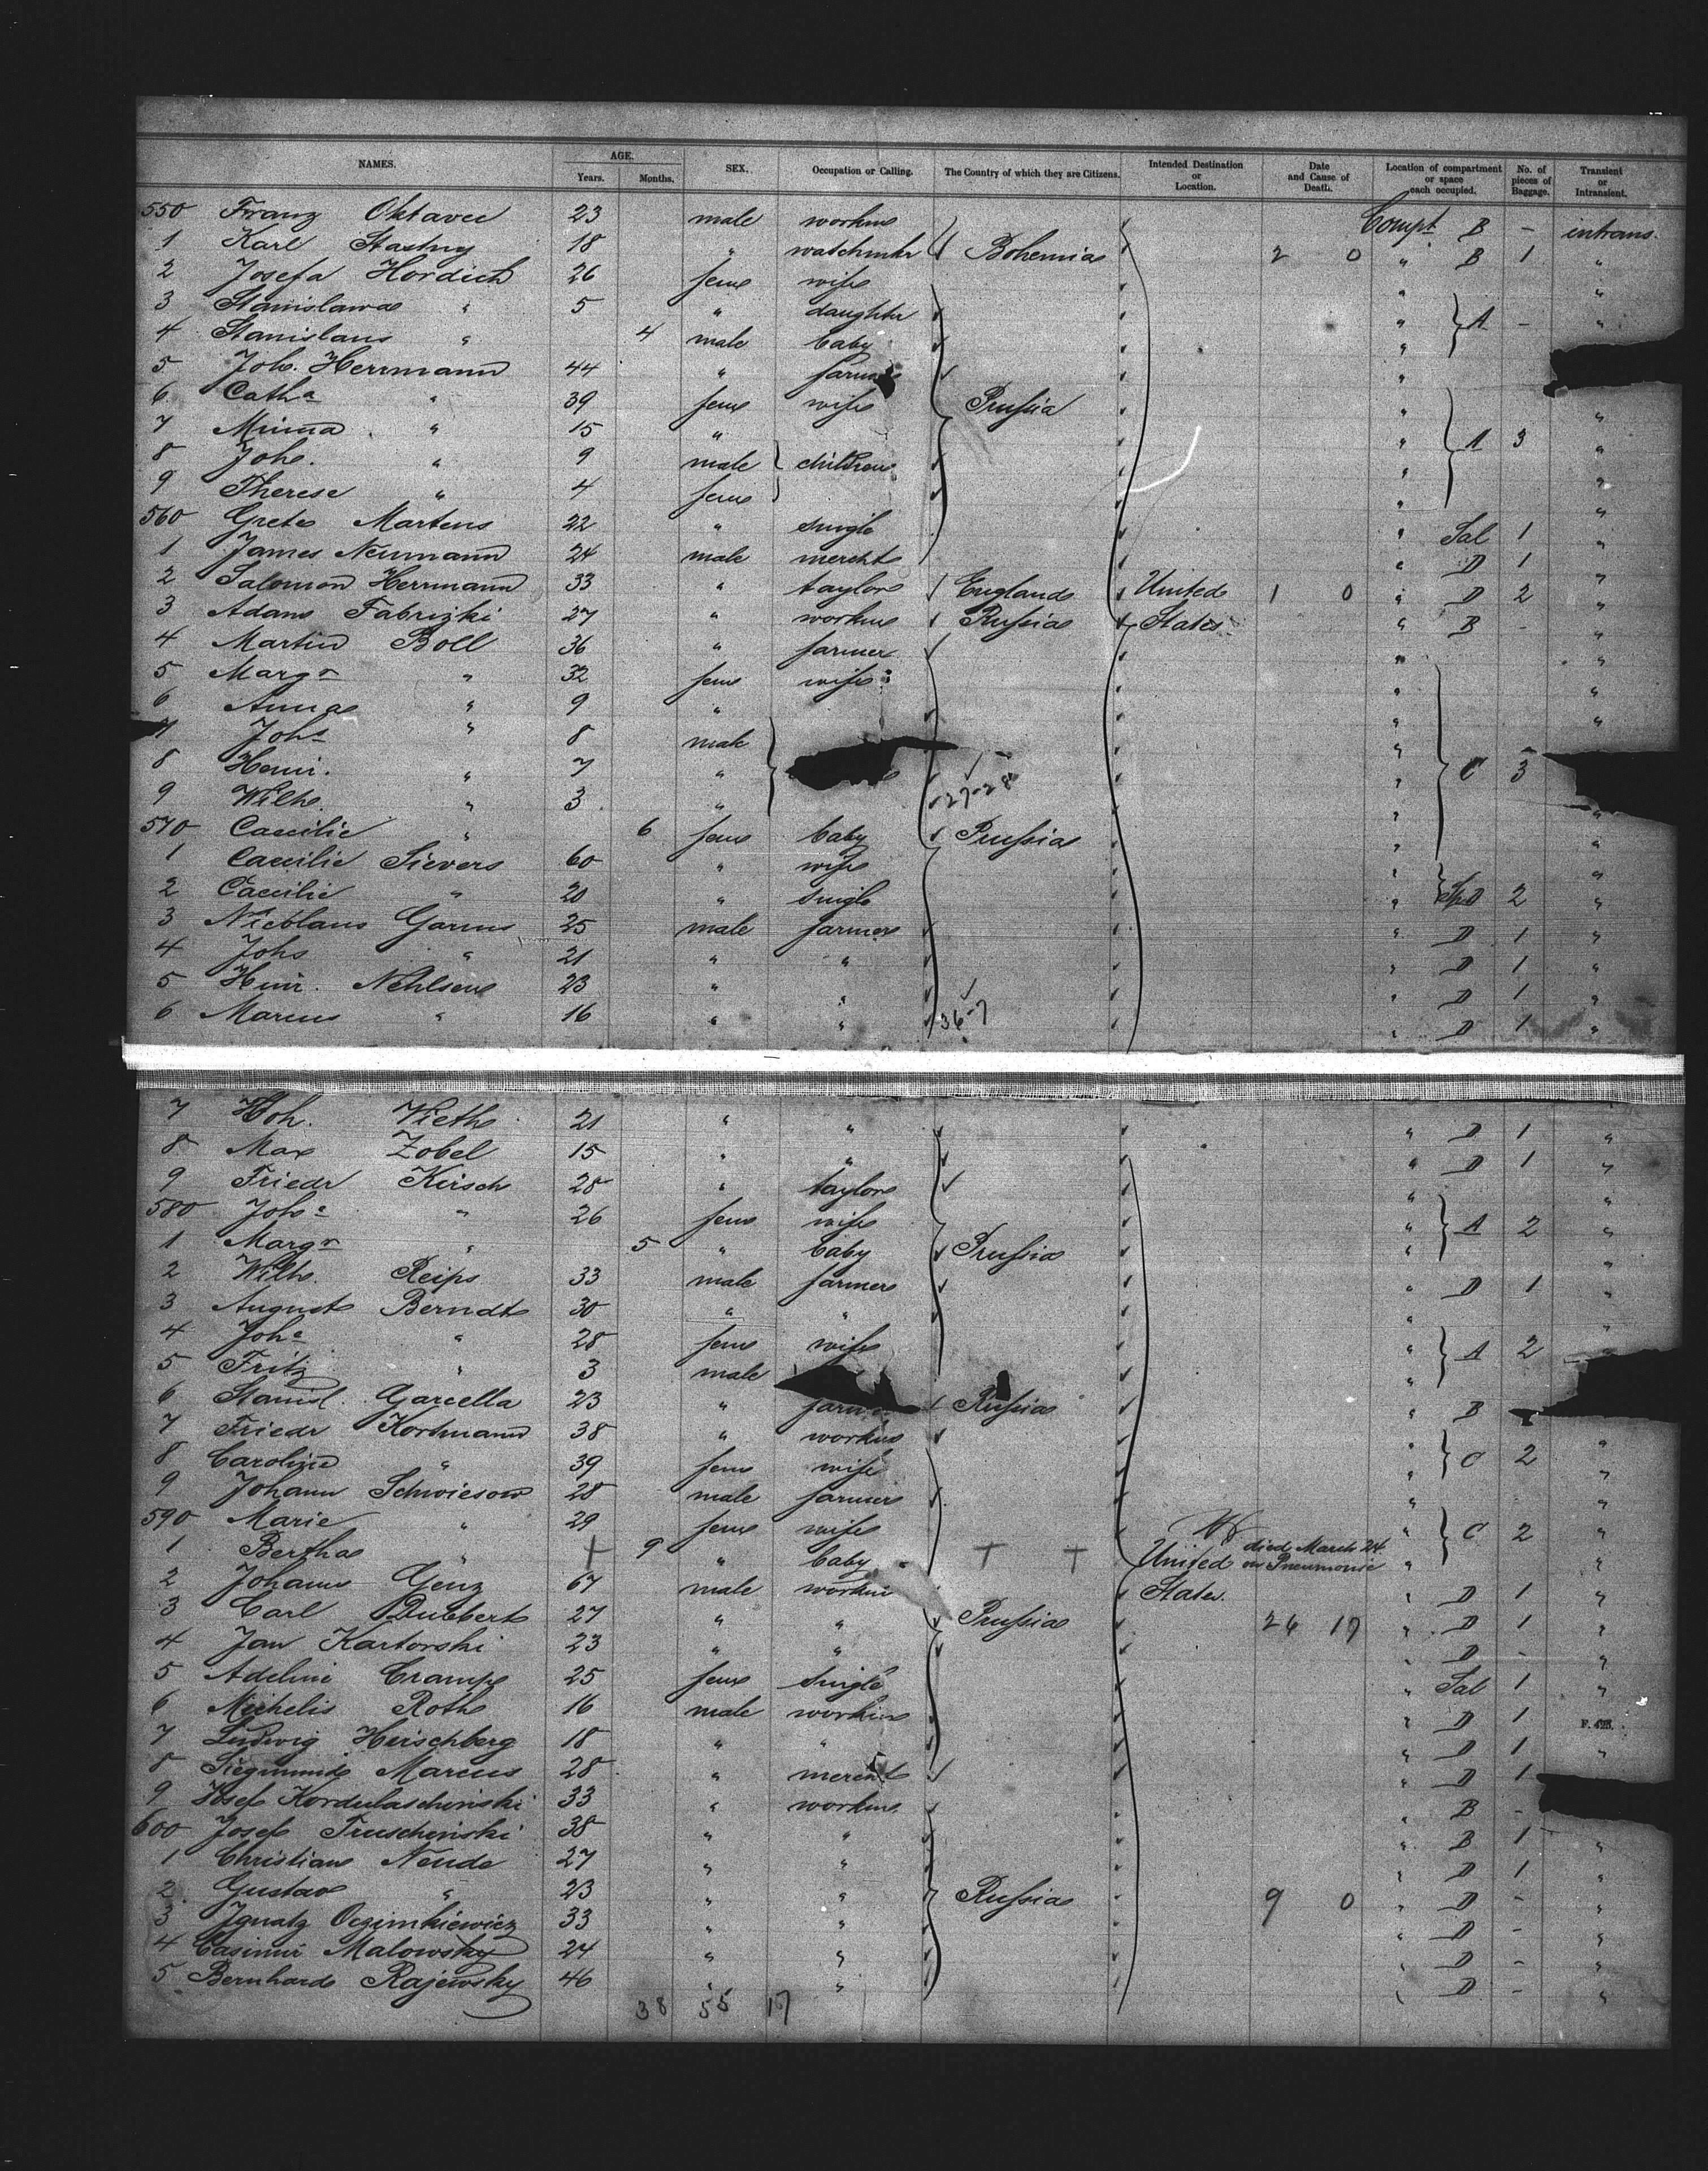 NAMES. AGE. Years. Months. SEX. Occupation or Calling. The Country of which they are Citizens. Intended Destination or Location. Date and Cause of Death. Location of compartment or space each occupied. No. of pieces of Baggage. Transient or Intransient.
550 Franz 23 male Compt B - intrans.
1 Karl Stastny 18 " Bohemia 2 0 " B 1 "
2 Josefa Hordich 26 fem wife " "
3 Stanislawa " 5 " daughter " A - "
4 Stanislaus " 4 male baby "
5 Joh. Herrmann 44 " "
6 Cath a " 39 fem wife Prussia " "
7 Minna " 15 " " A 3 "
8 Joh. " 9 male children " "
9 Therese " 4 fem " "
560 Grete Martens 22 " single " Sal 1 "
1 James Neumann 24 male mercht " D 1 "
2 Salomon Herrmann 33 " taylor England United 1 0 " D 2 "
3 Adam Fabrizki 27 " Russia States " B - "
4 Martin Boll 36 " farmer " "
5 Margr " 32 fem wife " "
6 Anna " 9 " " "
7 Johs " 8 male "
8 Heinr. " 7 " " C 3
9 Wilh. " 3 " -27-28 " "
570 Caecilie " 6 fem baby Prussia " "
1 Caecilie Sievers 60 " wife " "
2 Caecilie " 20 " single " D 2 "
3 Nicolaus Garms 25 male farmer " D 1 "
4 Johs " 21 " " " D 1 "
5 Heinr. Nehlsen 23 " " " D 1 "
6 Marcus " 16 " " 36-7 " D 1 "
7 Joh. Vieth 21 " " " D 1 "
8 Max Zobel 15 " " " D 1 "
9 Friedr Kirsch 28 " taylor " "
580 Joh a " 26 fem wife " A 2 "
1 Margr " 5 " baby Prussia " "
2 Wilh. Reips 33 male farmer " D 1 "
3 August Berndt 30 " " " "
4 Joh a " 28 fem wife " A 2
5 Fritz " 3 male "
6 Stanisl. Garcella 23 " Russia " B
7 Friedr Kortmann 38 " " "
8 Carolina " 39 fem wife " C 2 "
9 Johann Schwiesow 28 male farmer " "
590 Marie " 29 fem wife " C 2 "
1 Bertha " + 9 " baby + + United died March 24 on Pneumonie " "
2 Johann Genz 67 male States. D 1 "
3 Carl Dubbert 27 " " Prussia 26 17 " D 1 "
4 Jan Kartorski 23 " " " D - "
5 Adeline Crampe 25 fem single " Sal 1 "
6 Michelis Roth 16 male " D 1 F. 425.
7 Ludwig Hirschberg 18 " " " D 1 "
8 Siegmund Marcus 28 " mercht " D 1
9 Josef Kordulaschinski 33 " " B -
600 Josef Truschinski 38 " " " B 1 "
1 Christian Neude 27 " " " D 1 "
2 Gustav " 23 " " Russia 9 0 " D - "
3 Ignatz Oczimkiewicz 33 " " " D - "
4 Casimir Malowsky 24 " " " D - "
5 Bernhard Rajewsky 46 " " " D - "
38 55 17